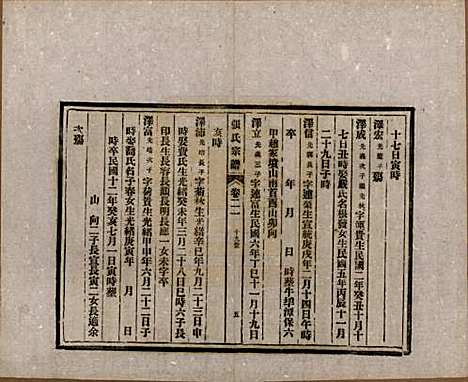 十七日寅時
澤宏 光龍子 殤
澤成 光義次子繼光桃 字頌貴生民國二年癸丑十月十
七日丑時娶嚴氏名根發女生民國五年丙辰十一月
二十九日子時
澤信 光義長子 字連榮生宣統庚戌年二月十四日午時
卒 年 月 日 時葬牛埠潭保六
甲趙家墳山南首酉山卯向
澤立 光義三子 字連富生民國六年丁巳十一月十九日
亥時
張氏宗譜 卷二二 十九世 五
澤浦 光培長子 字菊秋生光緒辛巳年九月二十三日申
時娶費氏生光緒癸未年三月二十八日巳時六子長
印長生長容長銀長明長源一女未字卒
澤富 光培次子 字荷貴生光緒甲申年六月二十二日子
時娶顏氏名子春女生光緒庚寅年 月 日
時卒民國十二年癸亥七月一日寅時葬
山 向二子長宣長寅二女長適余
次殤